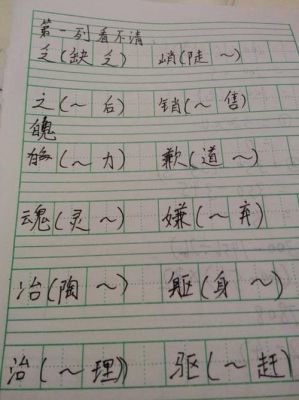 第一列看不清
乏(缺乏) 峭(陡~)
之(~后) 销(~售)
魄
魄(~力) 歉(道~)
魂(灵~) 嫌(~弃)
冶(陶~) 躯(身~)
治(~理) 驱(~赶)